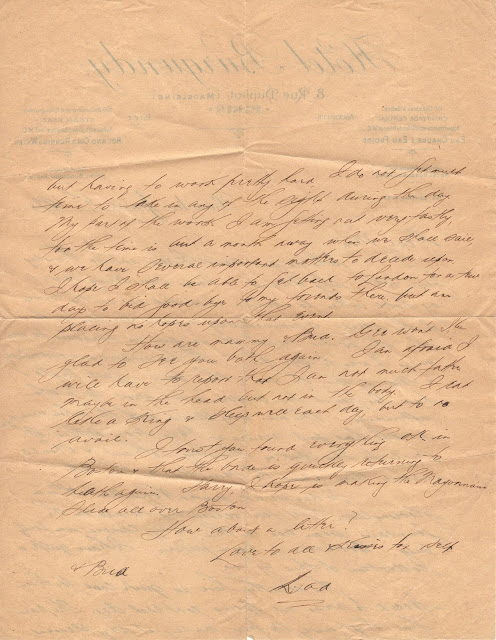 Hôtel Burgundy
8, Rue Duphot (Madeleine)
PARIS
Eau Chaude & Eau Froide
Hot and Cold Running Water
but having to work pretty hard I do not get much
time to take in any of the sights during the day.
My part of the work I am getting out very fastly,
for the time is but a month away when we shall sail,
& we have several important matters to decide upon.
I hope I shall be able to get back to London for a few
days to bid good-bye to my friends there, but am
placing no hopes upon that event.
How are mammy & Bud. Gee wont I be
glad to see you both again. I am afraid I
will have to report that I am not much fatter
maybe in the head but not in the body. I eat
like a King & sleep well each day but to no
avail.
I trust you found everything OK in
Boston & that the bride is quickly returning to
health again. Harry, I hope is making the Mayonnaise
slide all over Boston
How about a letter?
Love to all & kisses for self
& Bud
Dad